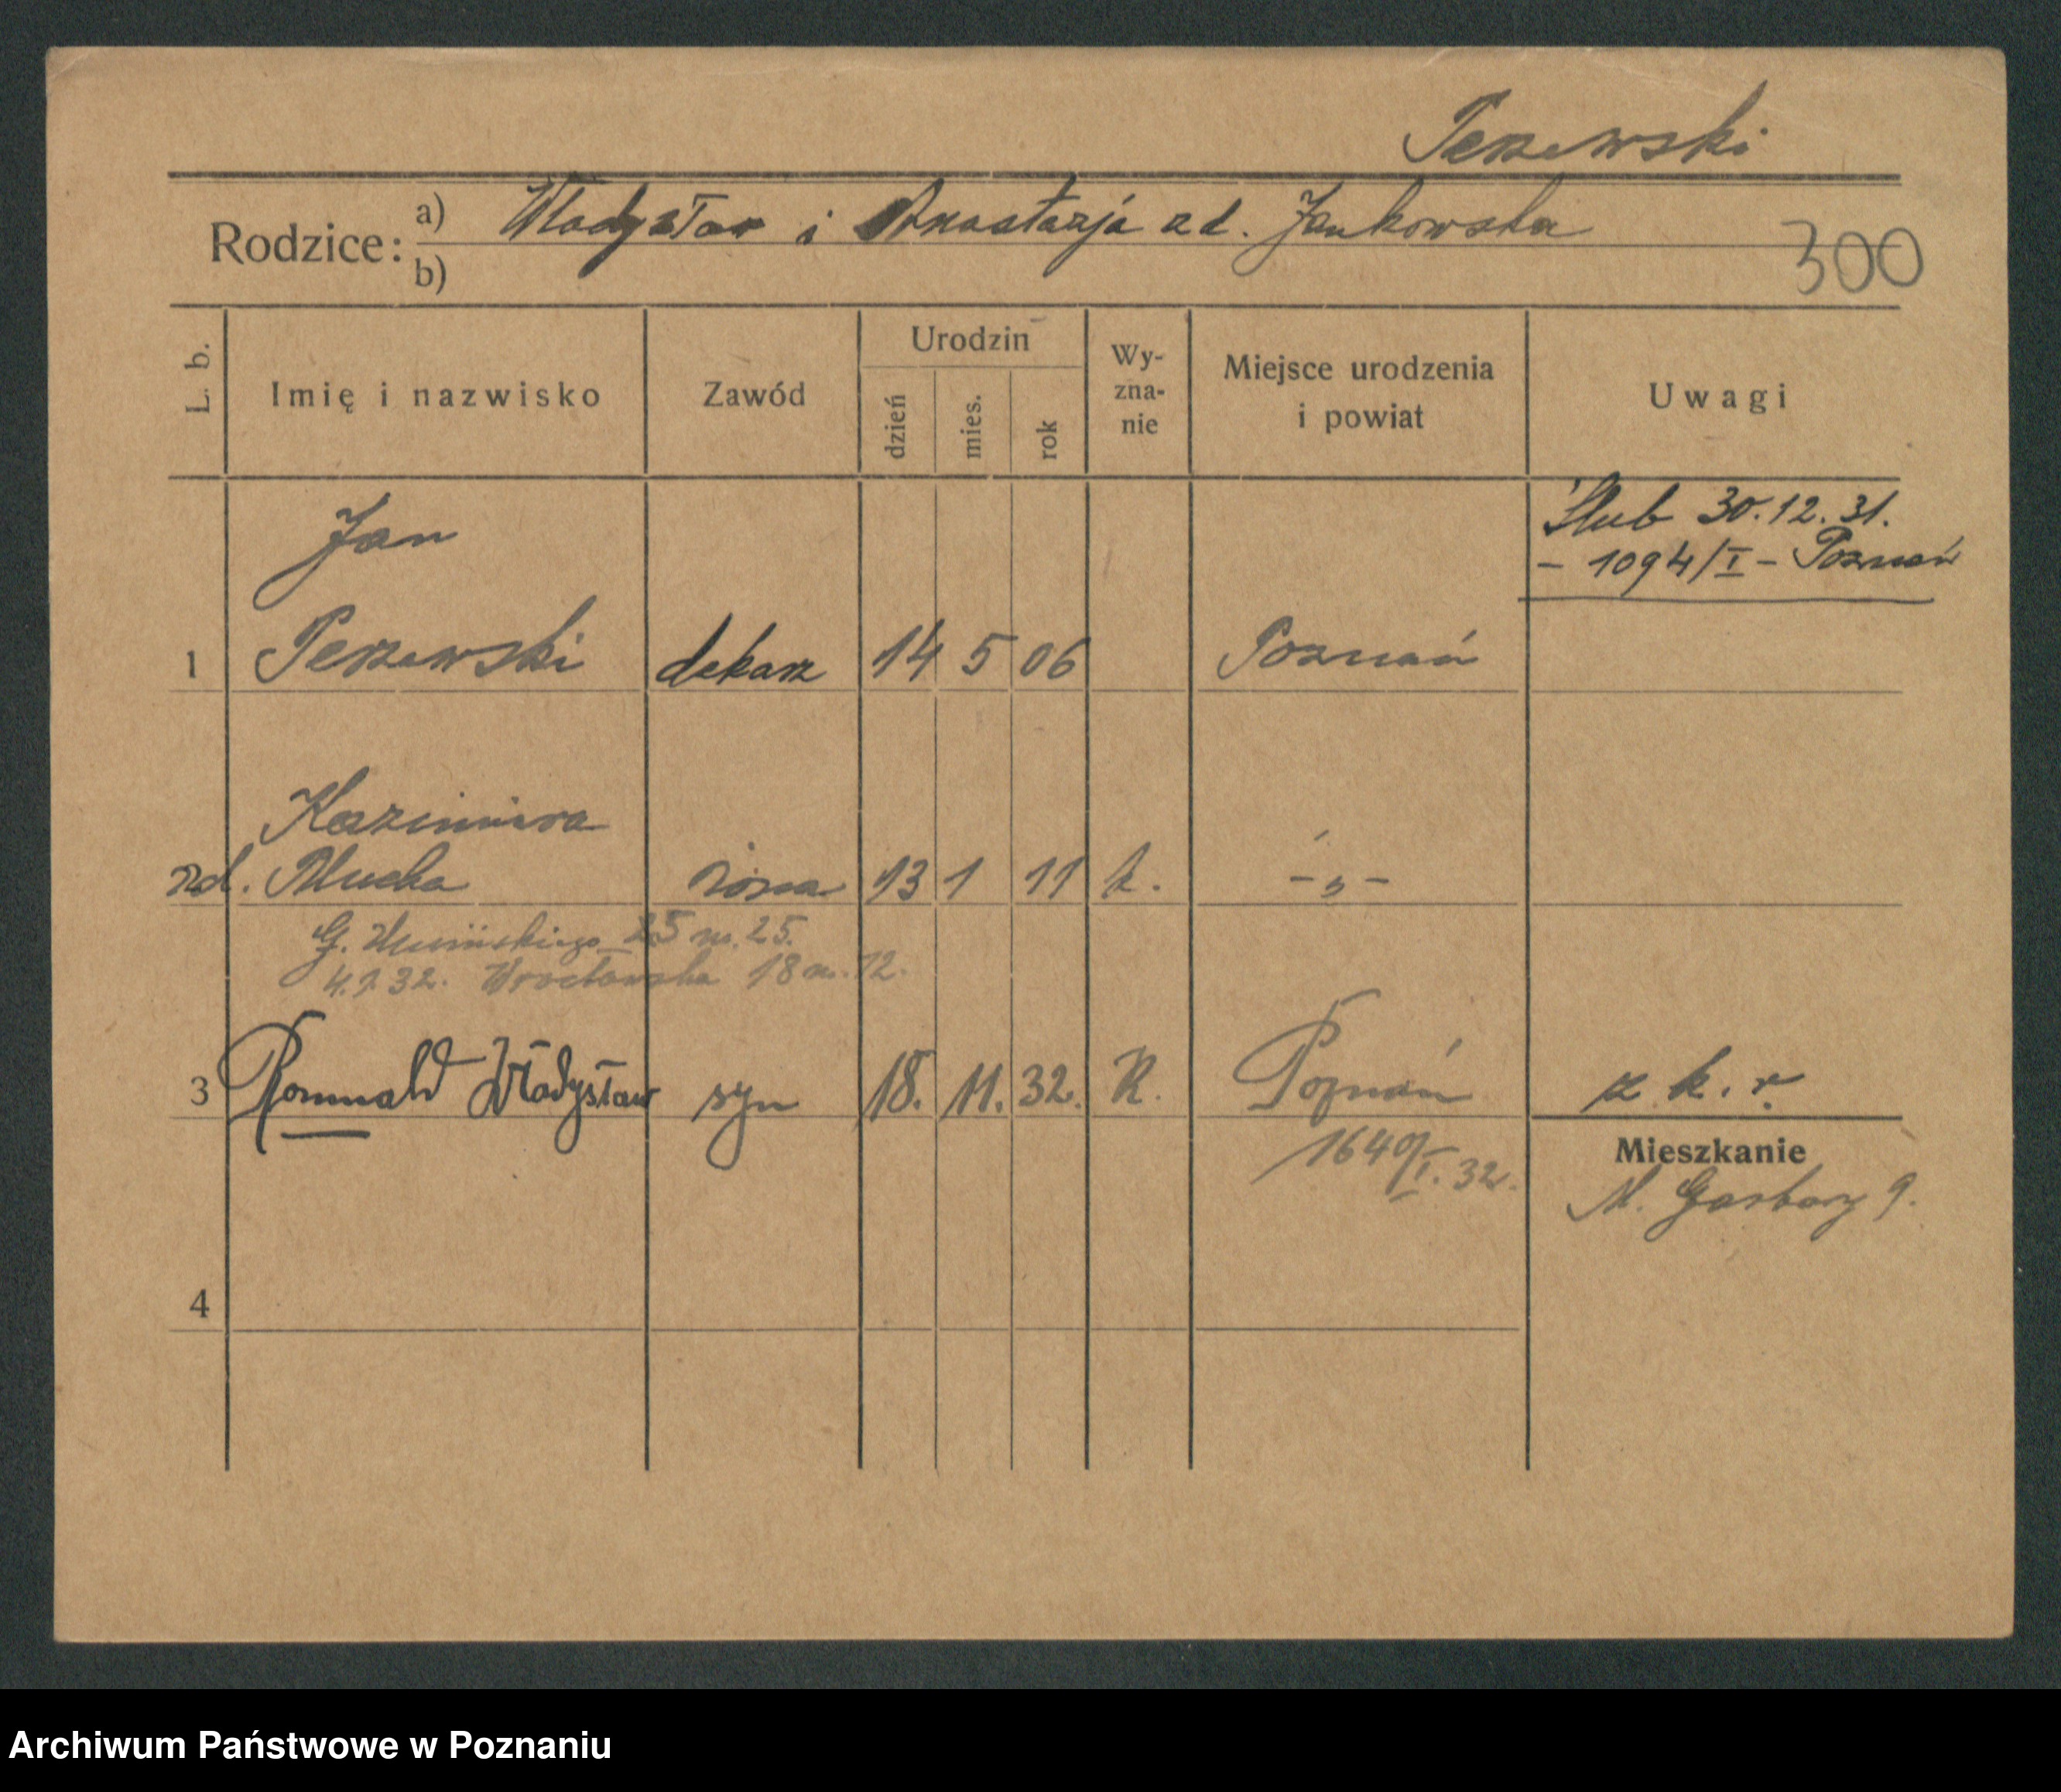 Perzewski
Rodzice: a) Władysław i Anastazja zd. Jankowska
b)
300
L. b. Imię i nazwisko Zawód Urodzin dzień mies. rok Wy-zna-nie Miejsce urodzenia i powiat Uwagi
Ślub 30.12.31.
- 1094/I - Poznań
Jan
1 Perzewski dekarz 14 5 06 Poznań
Kazimiera
zd. Mucha żona 13 1 11 k. - „ -
25 m. 25.
4.1.32. Wrocławska 18 m. 12.
3 Romuald Władysław syn 18. 11. 32. R. Poznań z k. r.
1640/I. 32.
Mieszkanie
M. Garbary 9.
4
Archiwum Państwowe w Poznaniu